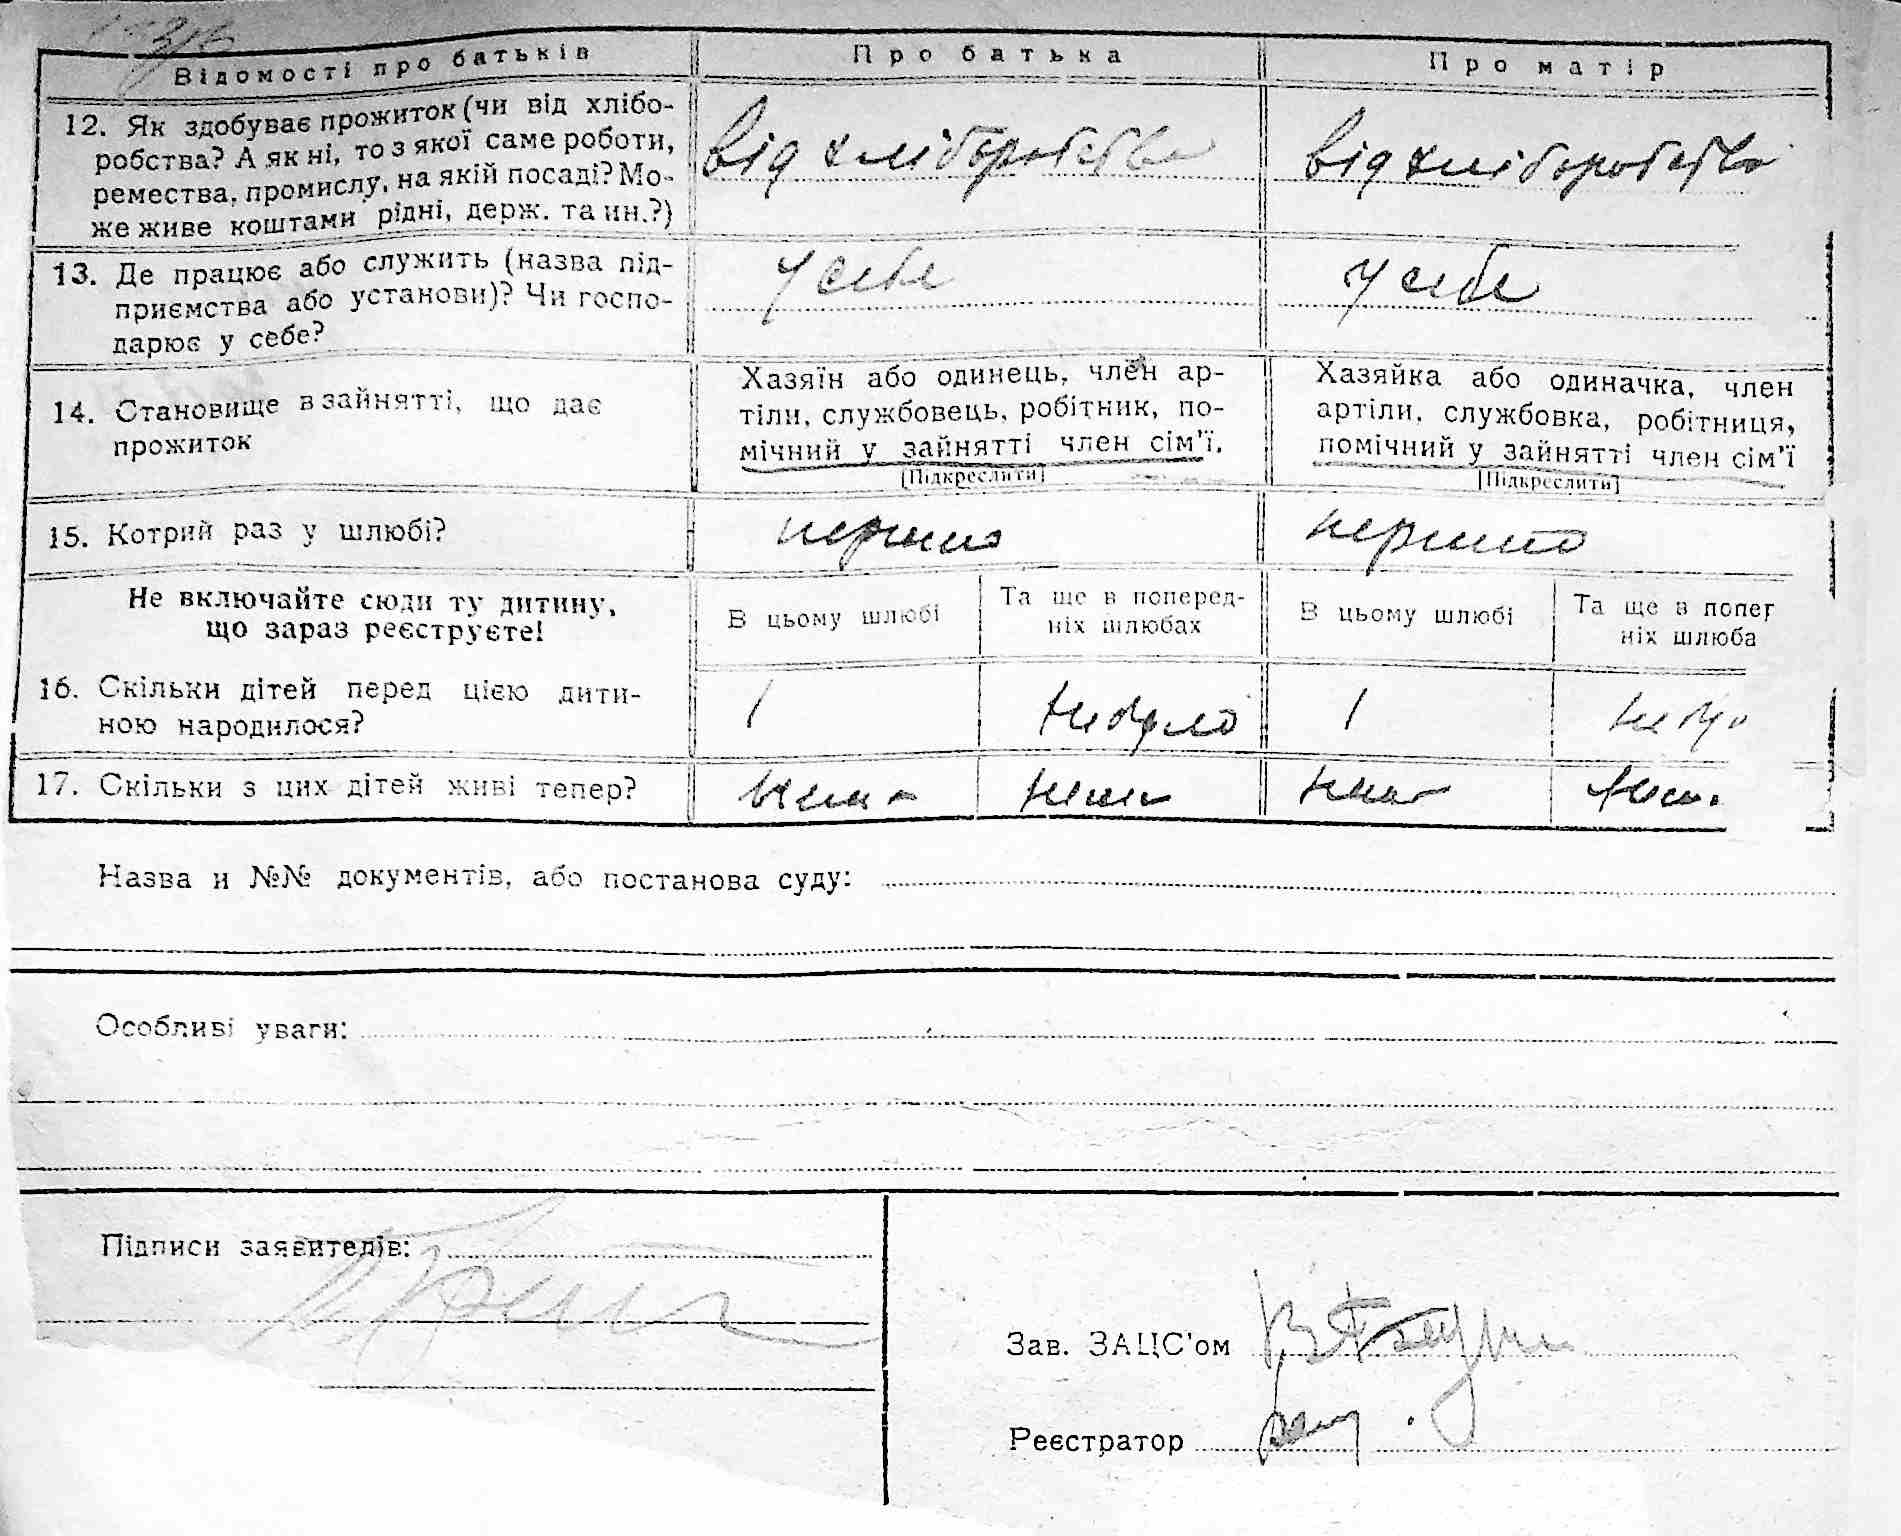 Відомості про батьків Про батька Про матір
12. Як здобуває прожиток (чи від хлібо-
робства? А як ні, то з якої саме роботи,
ремества, промислу, на якій посаді? Мо-
же живе коштами рідні, держ. та ин.?)
від хліборобства від хліборобства
13. Де працює або служить (назва під-
приємства або установи)? Чи госпо-
дарює у себе?
у себе у себе
14. Становище в зайнятті, що дає
прожиток
Хазяїн або одинець, член ар-
тіли, службовець, робітник, по-
мічний у зайнятті член сім'ї.
[Підкреслити]
Хазяйка або одиначка, член
артіли, службовка, робітниця,
помічний у зайнятті член сім'ї
[Підкреслити]
15. Котрий раз у шлюбі?
Не включайте сюди ту дитину,
що зараз реєструєте!
В цьому шлюбі
Та ще в поперед-
ніх шлюбах
В цьому шлюбі
Та ще в попер
ніх шлюба
16. Скільки дітей перед цією дити-
ною народилося?
1 не було 1
17. Скільки з цих дітей живі тепер?
Назва и №№ документів, або постанова суду:
Особливі уваги:
Підписи заявителів:
Зав. ЗАЦС'ом
Реєстратор